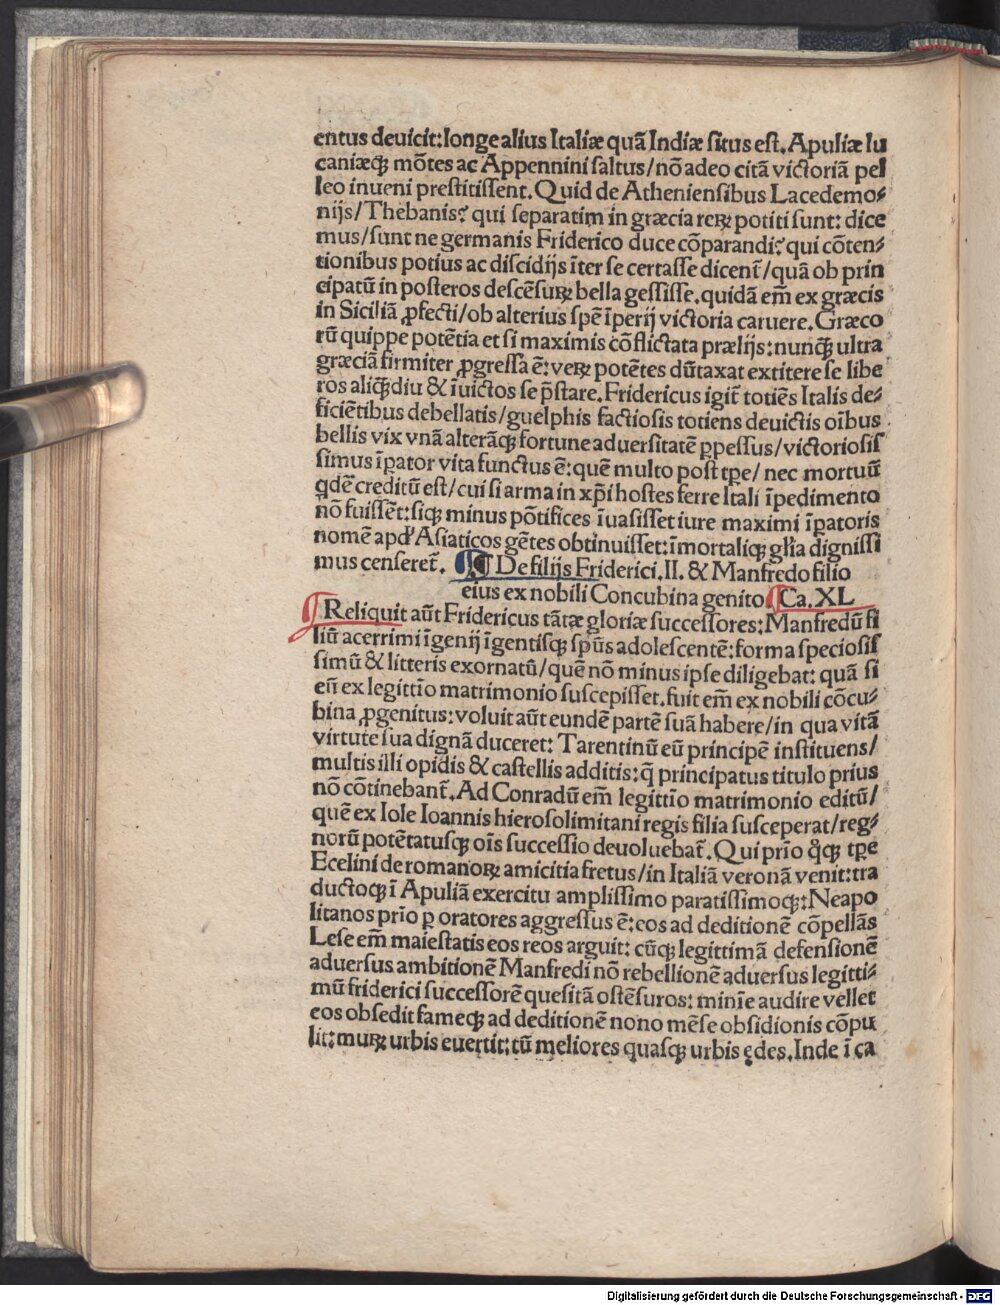 entus deuicit:longe alius Italiæ quā Indiæ situs est.Apuliæ lu
caniæqꝫ mōtes ac Appennini saltus/nō adeo citā victoriā pel
leo inueni prestitissent.Quid de Atheniensibus Lacedemo⸗
nijs/Thebanis? qui separatim in græcia rerꝝ potiti sunt: dice
mus/sunt ne germanis Friderico duce cōparandi? qui cōten⸗
tionibus potius ac discidijs īter se certasse dicent̄/quā ob prin
cipatū in posteros descēsurꝝ bella gessisse.quidā em̄ ex græcis
in Siciliā ꝓfecti/ob alterius spē īperij victoria caruere.Græco
rū quippe potētia et si maximis cōflictata prælijs:nunꝙ̄ ultra
græciā firmiter ꝓgressa ē:verꝝ potētes dūtaxat extitere se libe
ros aliꝙ̄diu & īuictos se p̄stare.Fridericus igit̄ totiēs Italis de⸗
ficiētibus debellatis/guelphis factiosis totiens deuictis oībus
bellis vix vnā alterāqꝫ fortune aduersitatē ꝑpessus/victoriosis
simus īpator vita functus ē:quē multo post tꝑe/ nec mortuū
qdē creditū est/cui si arma in xp̄i hostes ferre Itali īpedimento
nō fuissēt:siqꝫ minus pōtifices īuasisset iure maximi īꝑatoris
nomē apd' Asiaticos gētes obtinuisset:īmortaliqꝫ gl̄ia dignissi
mus censeret̄. ¶ De filijs Friderici.II. & Manfredo filio
eius ex nobili Concubina genito ¶ Ca.XL
¶ Reliquit aūt Fridericus tātæ gloriæ successores:Manfredū fi
liū acerrimi īgenij īgentisqꝫ sp̄us adolescentē:forma speciosis
simū & litteris exornatū/quē nō minus ipse diligebat: quā si
eū ex legittīo matrimonio suscepisset.fuit em̄ ex nobili cōcu⸗
bina ꝓgenitus:voluit aūt eundē partē suā habere/in qua vitā
virtute sua dignā duceret: Tarentinū eū principē instituens/
multis illi opidis & castellis additis:q̄ principatus titulo prius
nō cōtinebant̄.Ad Conradū em̄ legittīo matrimonio editū/
quē ex Iole Ioannis hierosolimitani regis filia susceperat/reg⸗
norū potētatusqꝫ oīs successio deuoluebat̄.Qui prīo qͦqꝫ tꝑe
Ecelini de romanorꝝ amicitia fretus/in Italiā veronā venit:tra
ductoqꝫ ī Apuliā exercitu amplissimo paratissimoqꝫ:Neapo
litanos prīo ꝑ oratores aggressus ē:eos ad deditionē cōpellās
Lese em̄ maiestatis eos reos arguit: cūqꝫ legittimā defensionē
aduersus ambitionē Manfredi nō rebellionē aduersus legitti⸗
mū friderici successorē quesitā ostēsuros: minīe audire vellet
eos obsedit fameqꝫ ad deditionē nono mēse obsidionis cōpu
lit:murꝝ urbis euertit:tū meliores quasqꝫ urbis ędes.Inde ī ca
Digitalisierung gefördert durch die Deutsche Forschungsgemeinschaft - DFG